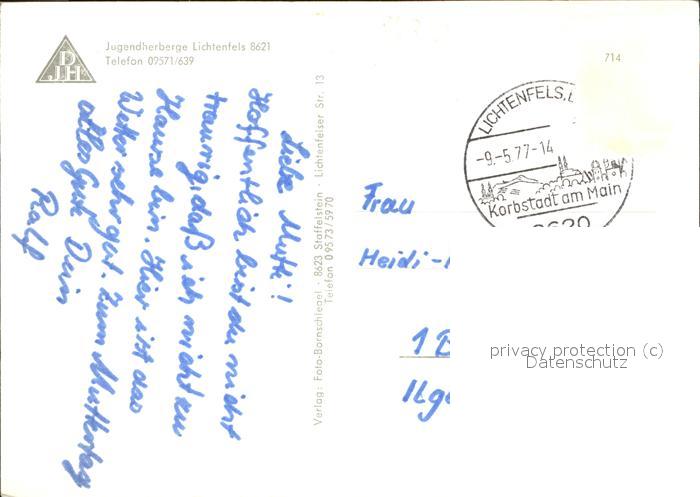 DJH
Jugendherberge Lichtenfels 8621
Telefon 09571/639
Liebe Mutti!
Hoffentlich bist du nicht
traurig, daß ich nicht zu
Hause bin. Hier ist das
Wetter sehr gut. Zum Muttertag
alles Gute Dein
Ralf
Verlag: Foto-Bornschlegel · 8623 Staffelstein · Lichtenfelser Str. 13
Telefon 09573/5970
714
LICHTENFELS,
-9.-5.77-14
Korbstadt am Main
8620
Frau
Heidi-
1
Ilge
privacy protection (c)
Datenschutz